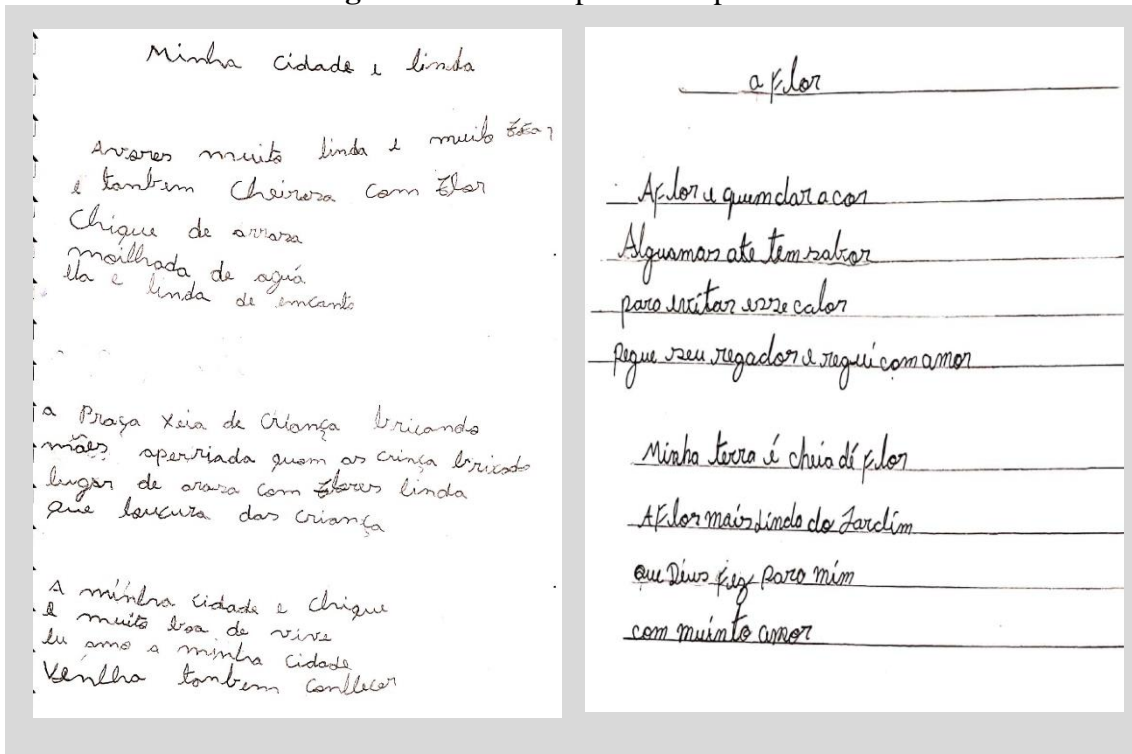 Minha cidade e linda
Avores muito linda e muito
e tanbem Cheirosa com Flor
Chigue de arrasa
moilhada de aguá
ela e linda de emcanto
a Praça xeia de Criança bricando
mães aperriada quom as crinça bricado
lugar de arasa com Flores linda
que loucura das criança
A minhna cidade e Chique
e muito boa de vive
eu amo a minha cidade
Venlha tanbem conllecer
a Flor
A Flor e quem dar a cor
Alguamas ate tem sabor
para evitar esse calor
pegue seu regador e regui com amor
Minha terra é cheia di flor
A Flor mais linda do Jardim
que Deus fez para mim
com muinto amor